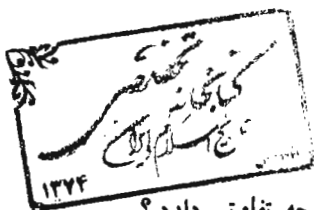 کتابخانه تخصصی
تاریخ اسلام و ایران
۱۳۷۴
چه تفاوتی دارد؟